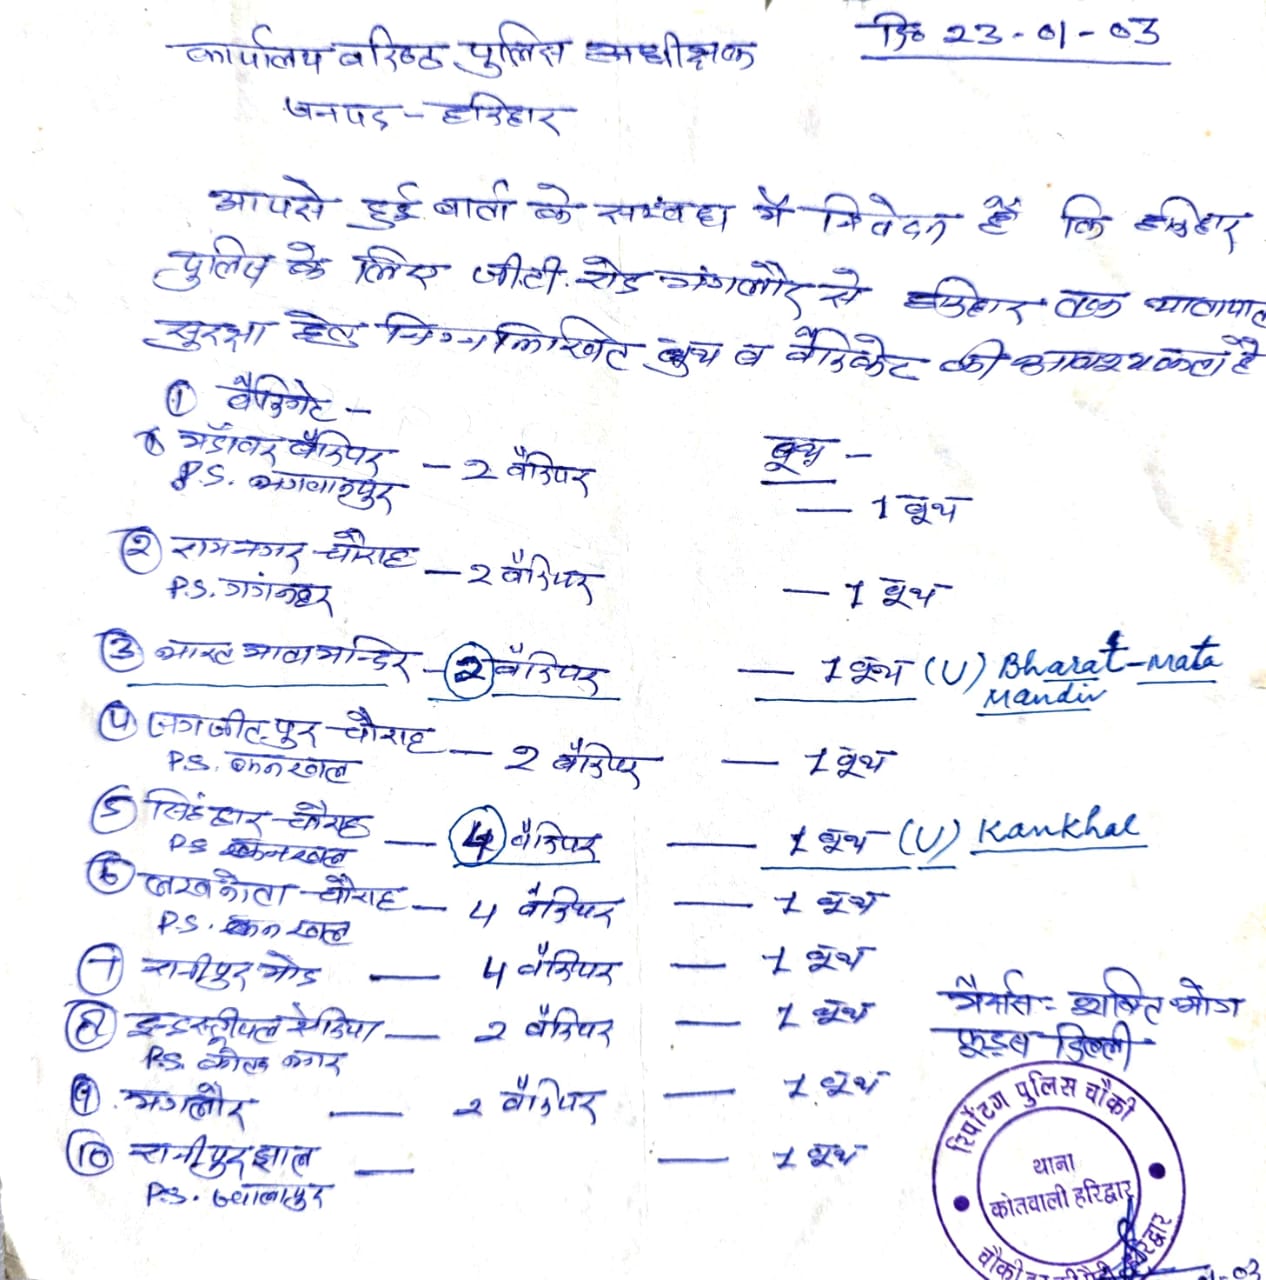 दि० 23-01-03
कार्यालय वरिष्ठ पुलिस अधीक्षक
जनपद - हरिद्वार
आपसे हुई वार्ता के सम्बन्ध में निवेदन है कि हरिद्वार
पुलिस के लिए जी.टी. रोड मंगलौर से हरिद्वार तक यातायात
सुरक्षा हेतु निम्नलिखित बूथ व बैरिकेट की आवश्यकता है
① बैरिगेट -
बूथ -
① मंडावर बैरियर - 2 बैरियर — 1 बूथ
P.S. भगवानपुर
② रामनगर चौराहा - 2 बैरियर — 1 बूथ
P.S. गंगनहर
③ भारत माता मन्दिर - 2 बैरियर — 1 बूथ (U) Bharat-Mata
Mandir
④ जगजीतपुर चौराहा — 2 बैरियर — 1 बूथ
P.S. कनखल
⑤ सिंहद्वार चौराहा — 4 बैरियर — 1 बूथ (U) Kankhal
P.S कनखल
⑥ चौराहा — 4 बैरियर — 1 बूथ
P.S. कनखल
⑦ रानीपुर मोड — 4 बैरियर — 1 बूथ
⑧ इन्डस्ट्रीयल ऐरिया — 2 बैरियर — 1 बूथ
P.S. नगर
⑨ मंगलौर — 2 बैरियर — 1 बूथ
⑩ रानीपुर झाल — — 1 बूथ
P.S. ज्वालापुर
मैसर्स: शक्ति भोग
फूड्स दिल्ली
रिपोर्टिंग पुलिस चौकी
थाना
कोतवाली हरिद्वार
चौकी हरिद्वार